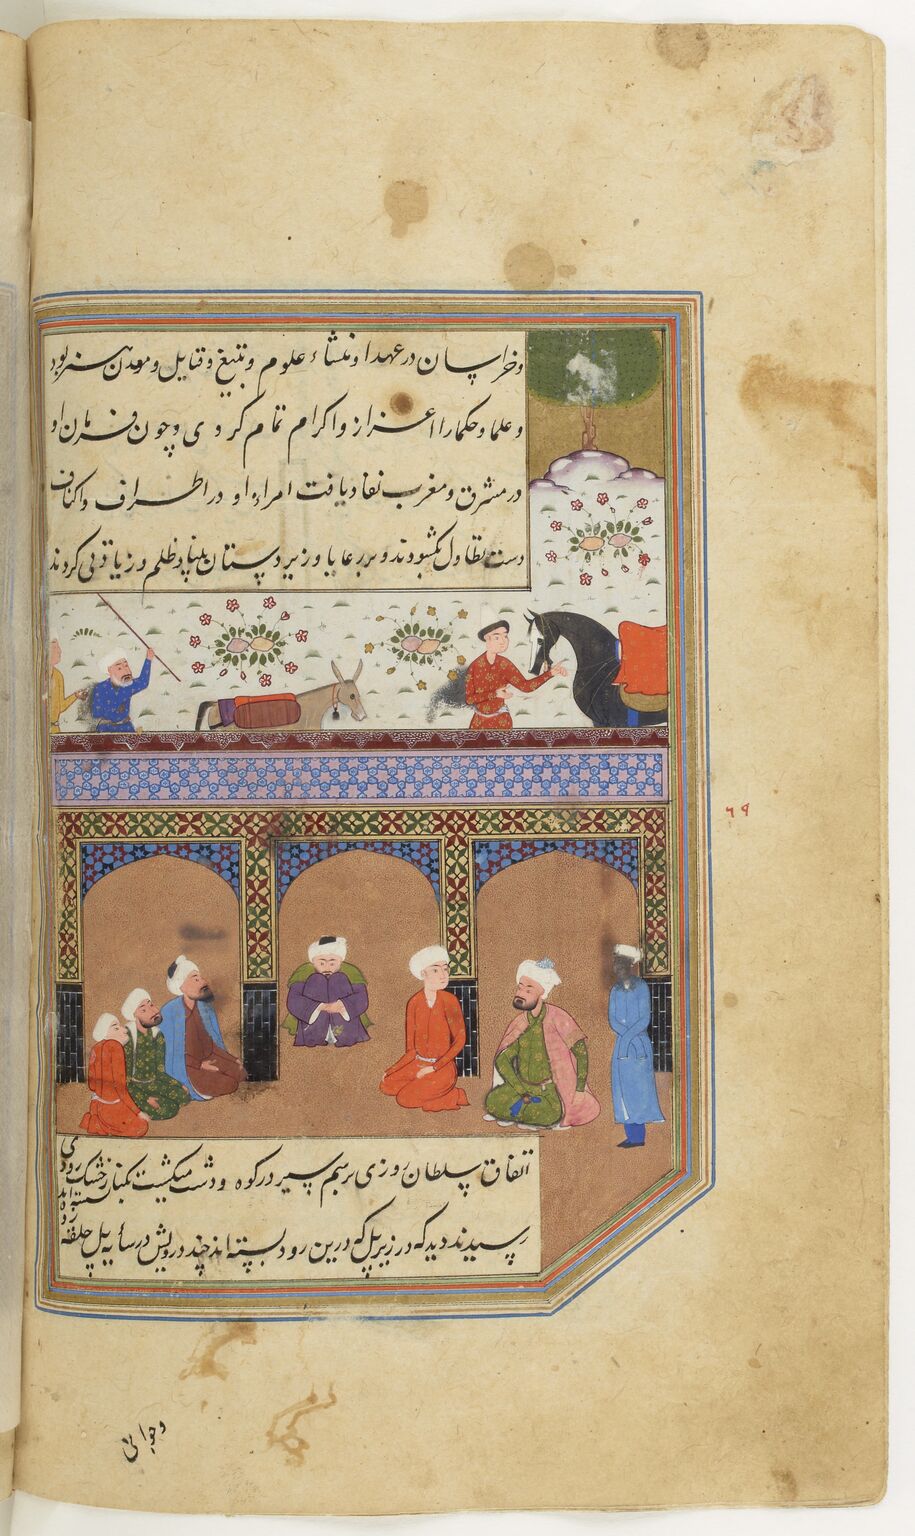 وخراسان در عهد او منشاء علوم و منبع و قنایل و معدن هنر بود
و علما و حکما را اعزاز و اکرام تمام کردی و چون فرمان او
در مشرق و مغرب نفاذ یافت امراء او در اطراف و اکناف
دست تطاول بگشودند و بر رعایا و زیردستان بلیناد ظلم و زیادتی کردند
اتفاق سلطان روزی برسم سیر در کوه و دشت میگشت بکنار خشک رودی
رسیدند دید که در زیر پل که درین رود بسته اند چند درویش در سایه پل حلقه
زده
۶۹
و جوانی